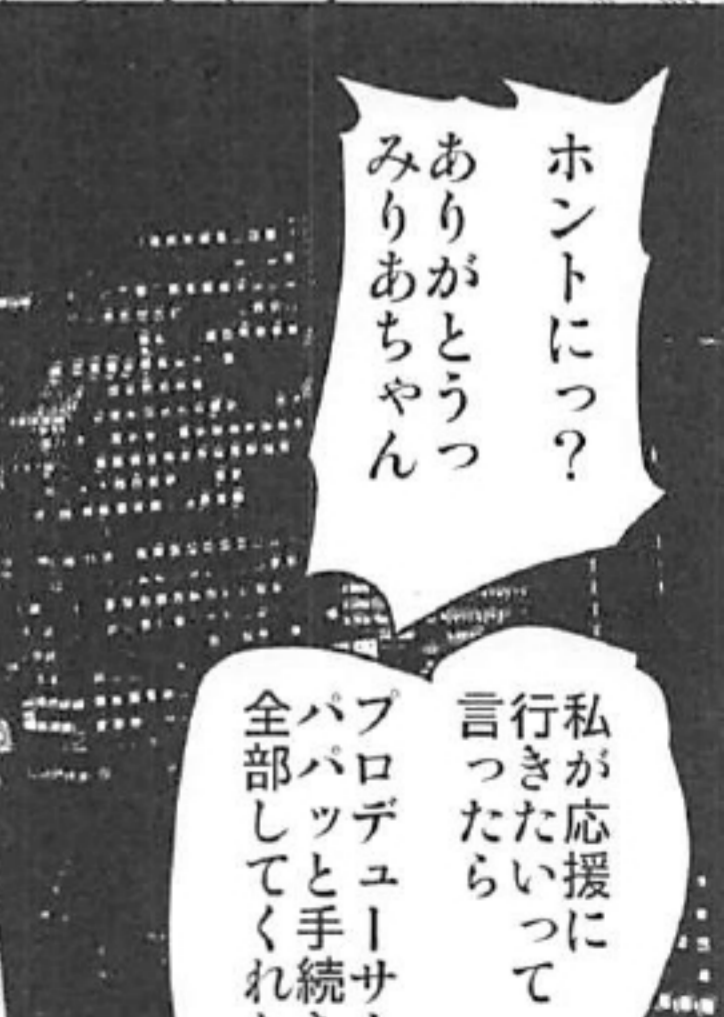 ホントにっ？
ありがとうっ
みりあちゃん
私が応援に
行きたいって
言ったら
プロデューサ
パパッと手続
全部してくれ